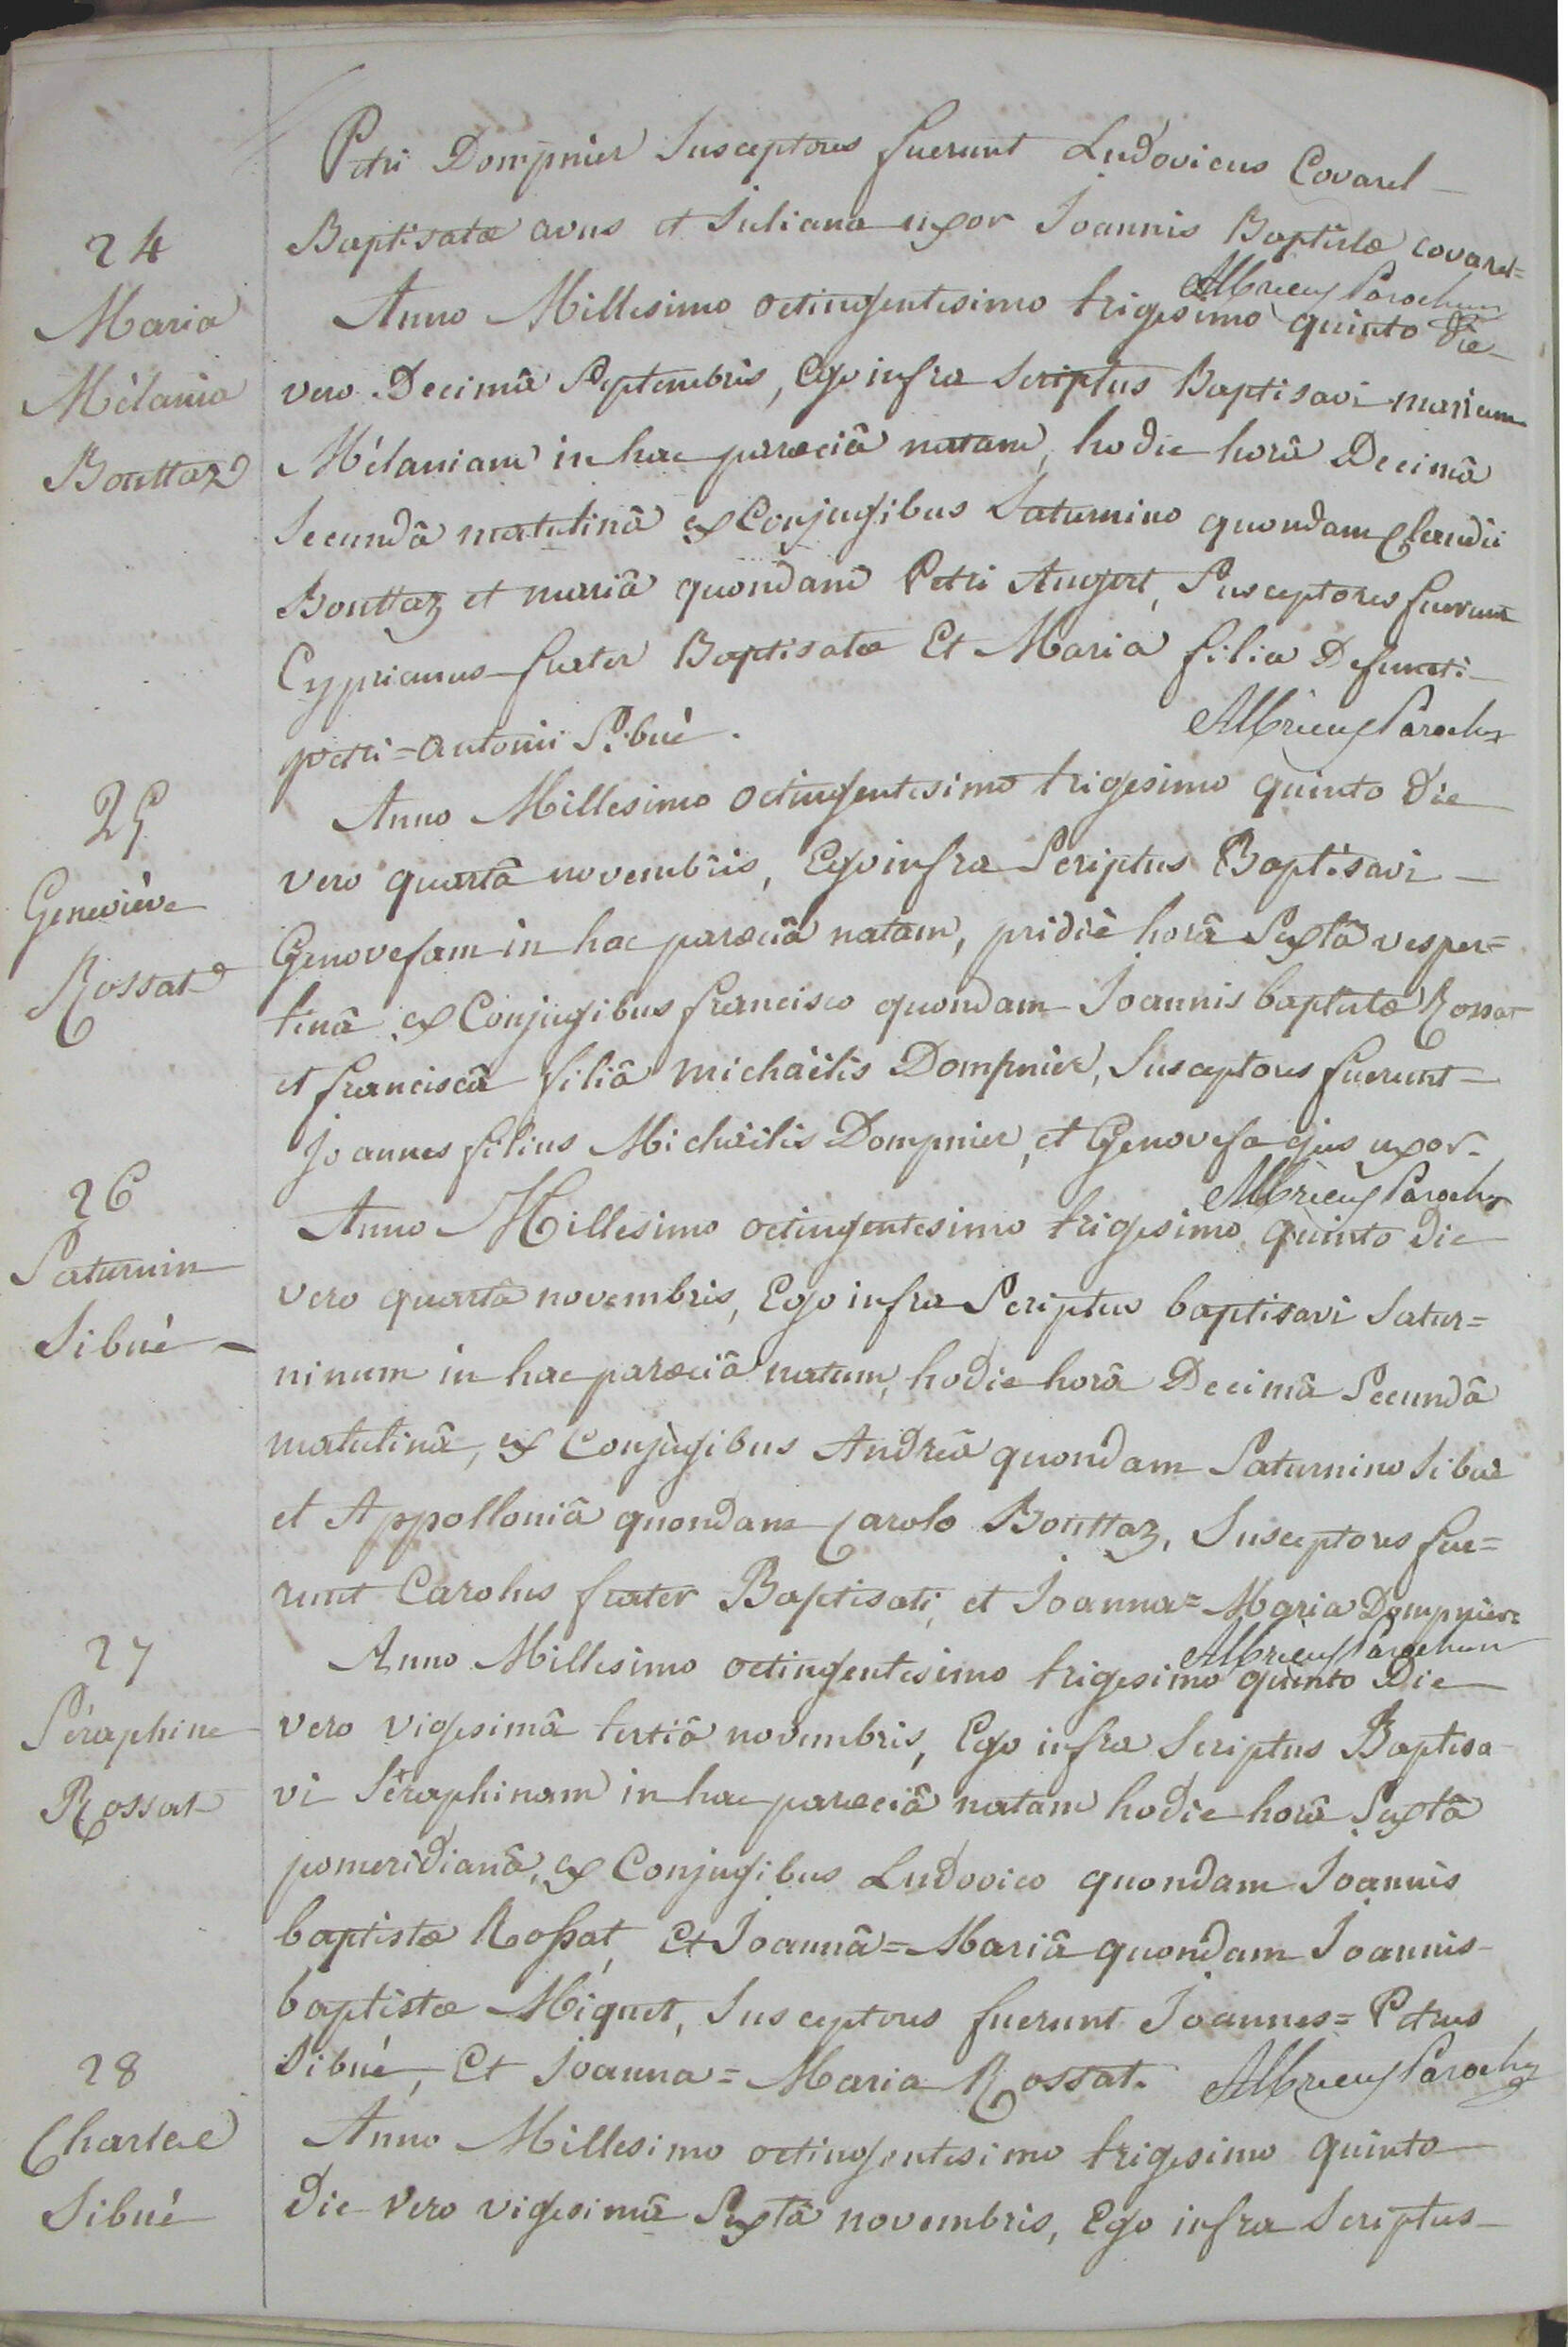 Petri Dompnier Susceptores fuerunt Ludovicus Covarel
Baptisatæ avus et Juliana uxor Joannis Baptistæ covarel=
Albrieux Parochus
24
Maria
Mélania
Bouttaz
Anno Millesimo octingentesimo trigesimo quinto die
vero Decimâ Septembris, Ego infra Scriptus Baptisavi mariam
Mélaniam in hac parœciâ natam, hodie horâ Decimâ
Secundâ matutinâ ex Conjugibus Saturnino quondam Claudii
Bouttaz et mariâ quondam Petri Augert, Susceptores fuerunt
Cyprianus frater Baptisatæ Et Maria filia Defuncti
petri=antonii Sibué.
Albrieux Parochus
25
Geneviève
Rossat
Anno Millesimo octingentesimo trigesimo quinto die
vero quartâ novembris, Ego infra Scriptus Baptisavi
Genovefam in hac parœciâ natam, pridiè horâ Sextâ vesper=
tinâ ex Conjugibus francisco quondam Joannis baptistæ Rossat
et franciscâ filiâ michaëlis Dompnier, Susceptores fuerunt
Joannes filius Michaëlis Dompnier, et Genovefa ejus uxor.
Albrieux Parochus
26
Saturnin
Sibué
Anno Millesimo octingentesimo trigesimo quinto die
vero quartâ novembris, Ego infra Scriptus baptisavi Satur=
ninum in hac parœciâ natum, hodie horâ Decimâ Secundâ
matutinâ, ex Conjugibus Andreâ quondam Saturnino Sibué
et Appolloniâ quondam Carolo Bouttaz, Susceptores fue=
runt Carolus frater Baptisati, et Joanna=Maria Dompnier=
Albrieux Parochus
27
Séraphine
Rossat
Anno Millesimo octingentesimo trigesimo quinto Die
vero vigesimâ tertiâ novembris, Ego infra Scriptus Baptisa
vi Séraphinam in hac parœciâ natam hodie horâ Sextâ
pomeridianâ, ex Conjugibus Ludovico quondam Joannis
baptistæ Rossat, Et Joannâ=Mariâ quondam Joannis
baptistæ Miquet, Susceptores fuerunt Joannes=Petrus
Sibué, Et Joanna=Maria Rossat.
Albrieux Parochus
28
Charles
Sibué
Anno Millesimo octingentesimo trigesimo quinto
die vero vigesimâ Sextâ novembris, Ego infra Scriptus